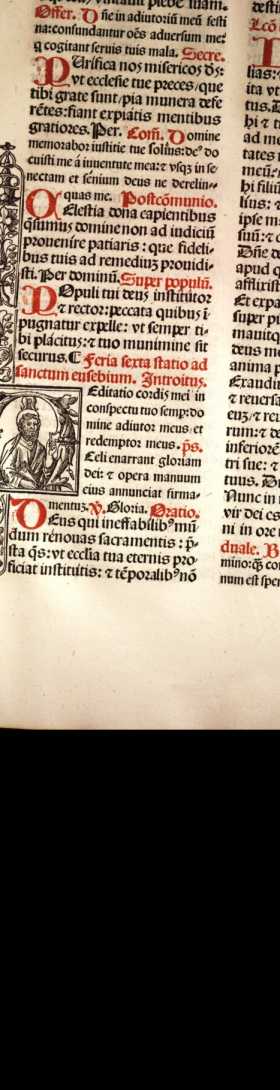 Offer. Dñe in adiutoriũ meũ festi
na: confundantur oẽs aduersum me:
q cogitant seruis tuis mala. Secre.
PUrifica nos misericors dš:
vt ecclesie tue preces/que
tibi grate sunt/pia munera defe
rẽtes: fiant expiatis mentibus
gratiores. Per. Com̃. Domine
memorabor iustitie tue solius: deꝰ do
cuisti me a iuuentute mea: ⁊ vsqꝫ in se
nectam et senium deus ne derelin-
quas me. Postcõmunio.
CElestia dona capientibus
q̃sumus domine non ad iudiciũ
prouenire patiaris: que fideli-
bus tuis ad remediuꝫ prouidi-
sti. Per dominũ. Super populũ.
POpuli tui deus institutor
⁊ rector: peccata quibus ĩ-
pugnatur expelle: vt semper ti-
bi placitus: ⁊ tuo munimine sit
securus. ⸿ Feria sexta statio ad
sanctum eusebium. Introitus.
Editatio cordis mei in
conspectu tuo semp: do
mine adiutor meus et
redemptor meus. p̃s.
Celi enarrant gloriam
dei: ⁊ opera manuum
eius annunciat firma-
mentuꝫ. ℣. Gloria. Oratio.
DEus qui ineffabilibꝰ mũ
dum renouas sacramentis: p̃-
sta q̃s: vt ecclia tua eternis pro
ficiat institutis: ⁊ tẽporalibꝰ nõ
lias:
ita vt
tus.
hi ⁊
ad me
tates
meũ
hi filiũ
lins: ⁊
ipse m
suũ: ⁊
Dñe de
apud q
affixist
Et expa
super pu
manuq
deus m
anima p
Exaudi
⁊ reuersa
rum: ⁊ de
inferiorẽ
tri sue: ⁊
tuus.
Nunc in
vir dei es
ni in ore
duale.
num est sper